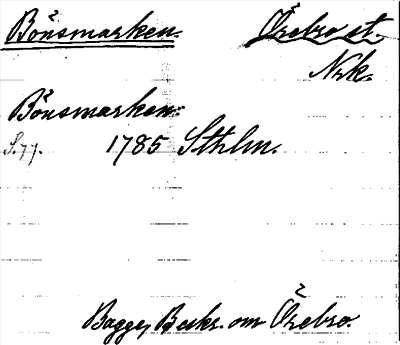 Bönsmarken. Örebro st.
Nrk.
Bönsmarken:
S. 77. 1785 Sthlm.
Bagge, Beskr. om Örebro.